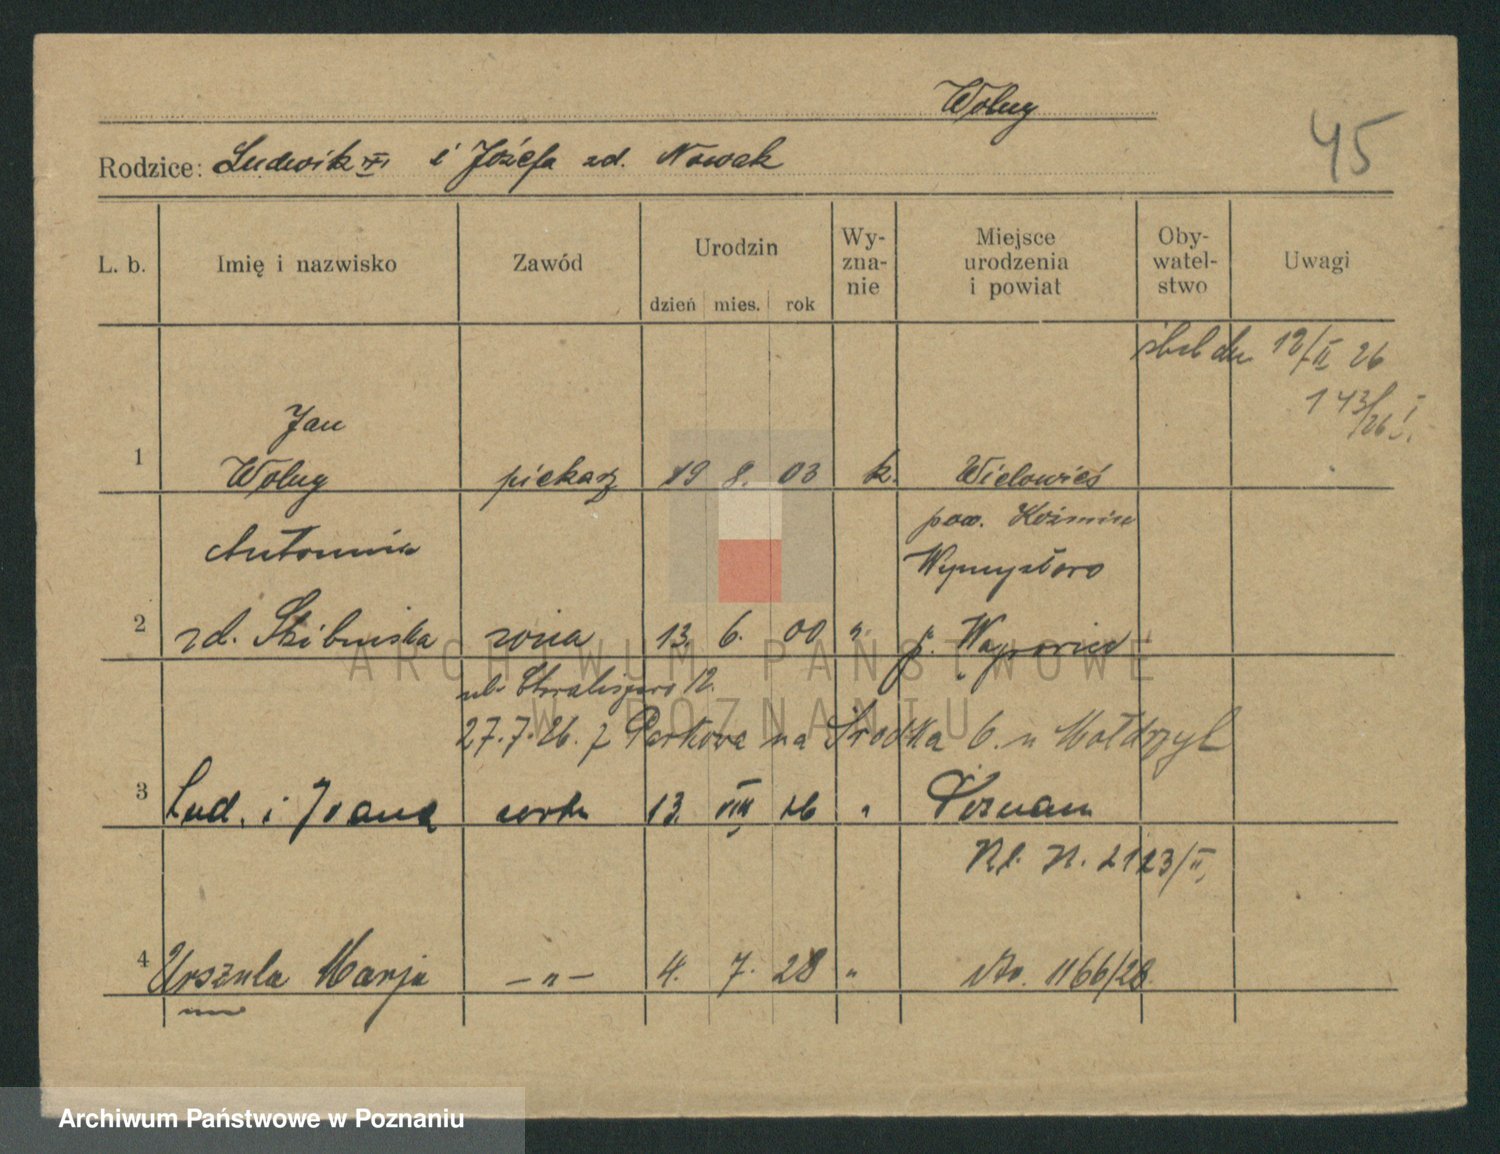 Wolny
45
Rodzice: Ludwik i Józefa zd. Nowak
L. b. Imię i nazwisko Zawód Urodzin dzień mies. rok Wy-zna-nie Miejsce urodzenia i powiat Oby-watel-stwo Uwagi
12/II 26
143/26 I.
Jan
1 Wolny piekarz 19 8. 03 k. Wielowieś
pow. Koźmin
Antonina
2 zd. żona 13. 6. 00 ". p.
12.
27.7.26. Parkowa na Śródka 6. u
3 Lud. i Joana córka 13. VIII 26 " Poznań
N. 2123/II,
4 Urszula Marja — " — 4. 7. 28 " No. 1166/28.
ARCHIWUM PAŃSTWOWE
W POZNANIU
Archiwum Państwowe w Poznaniu